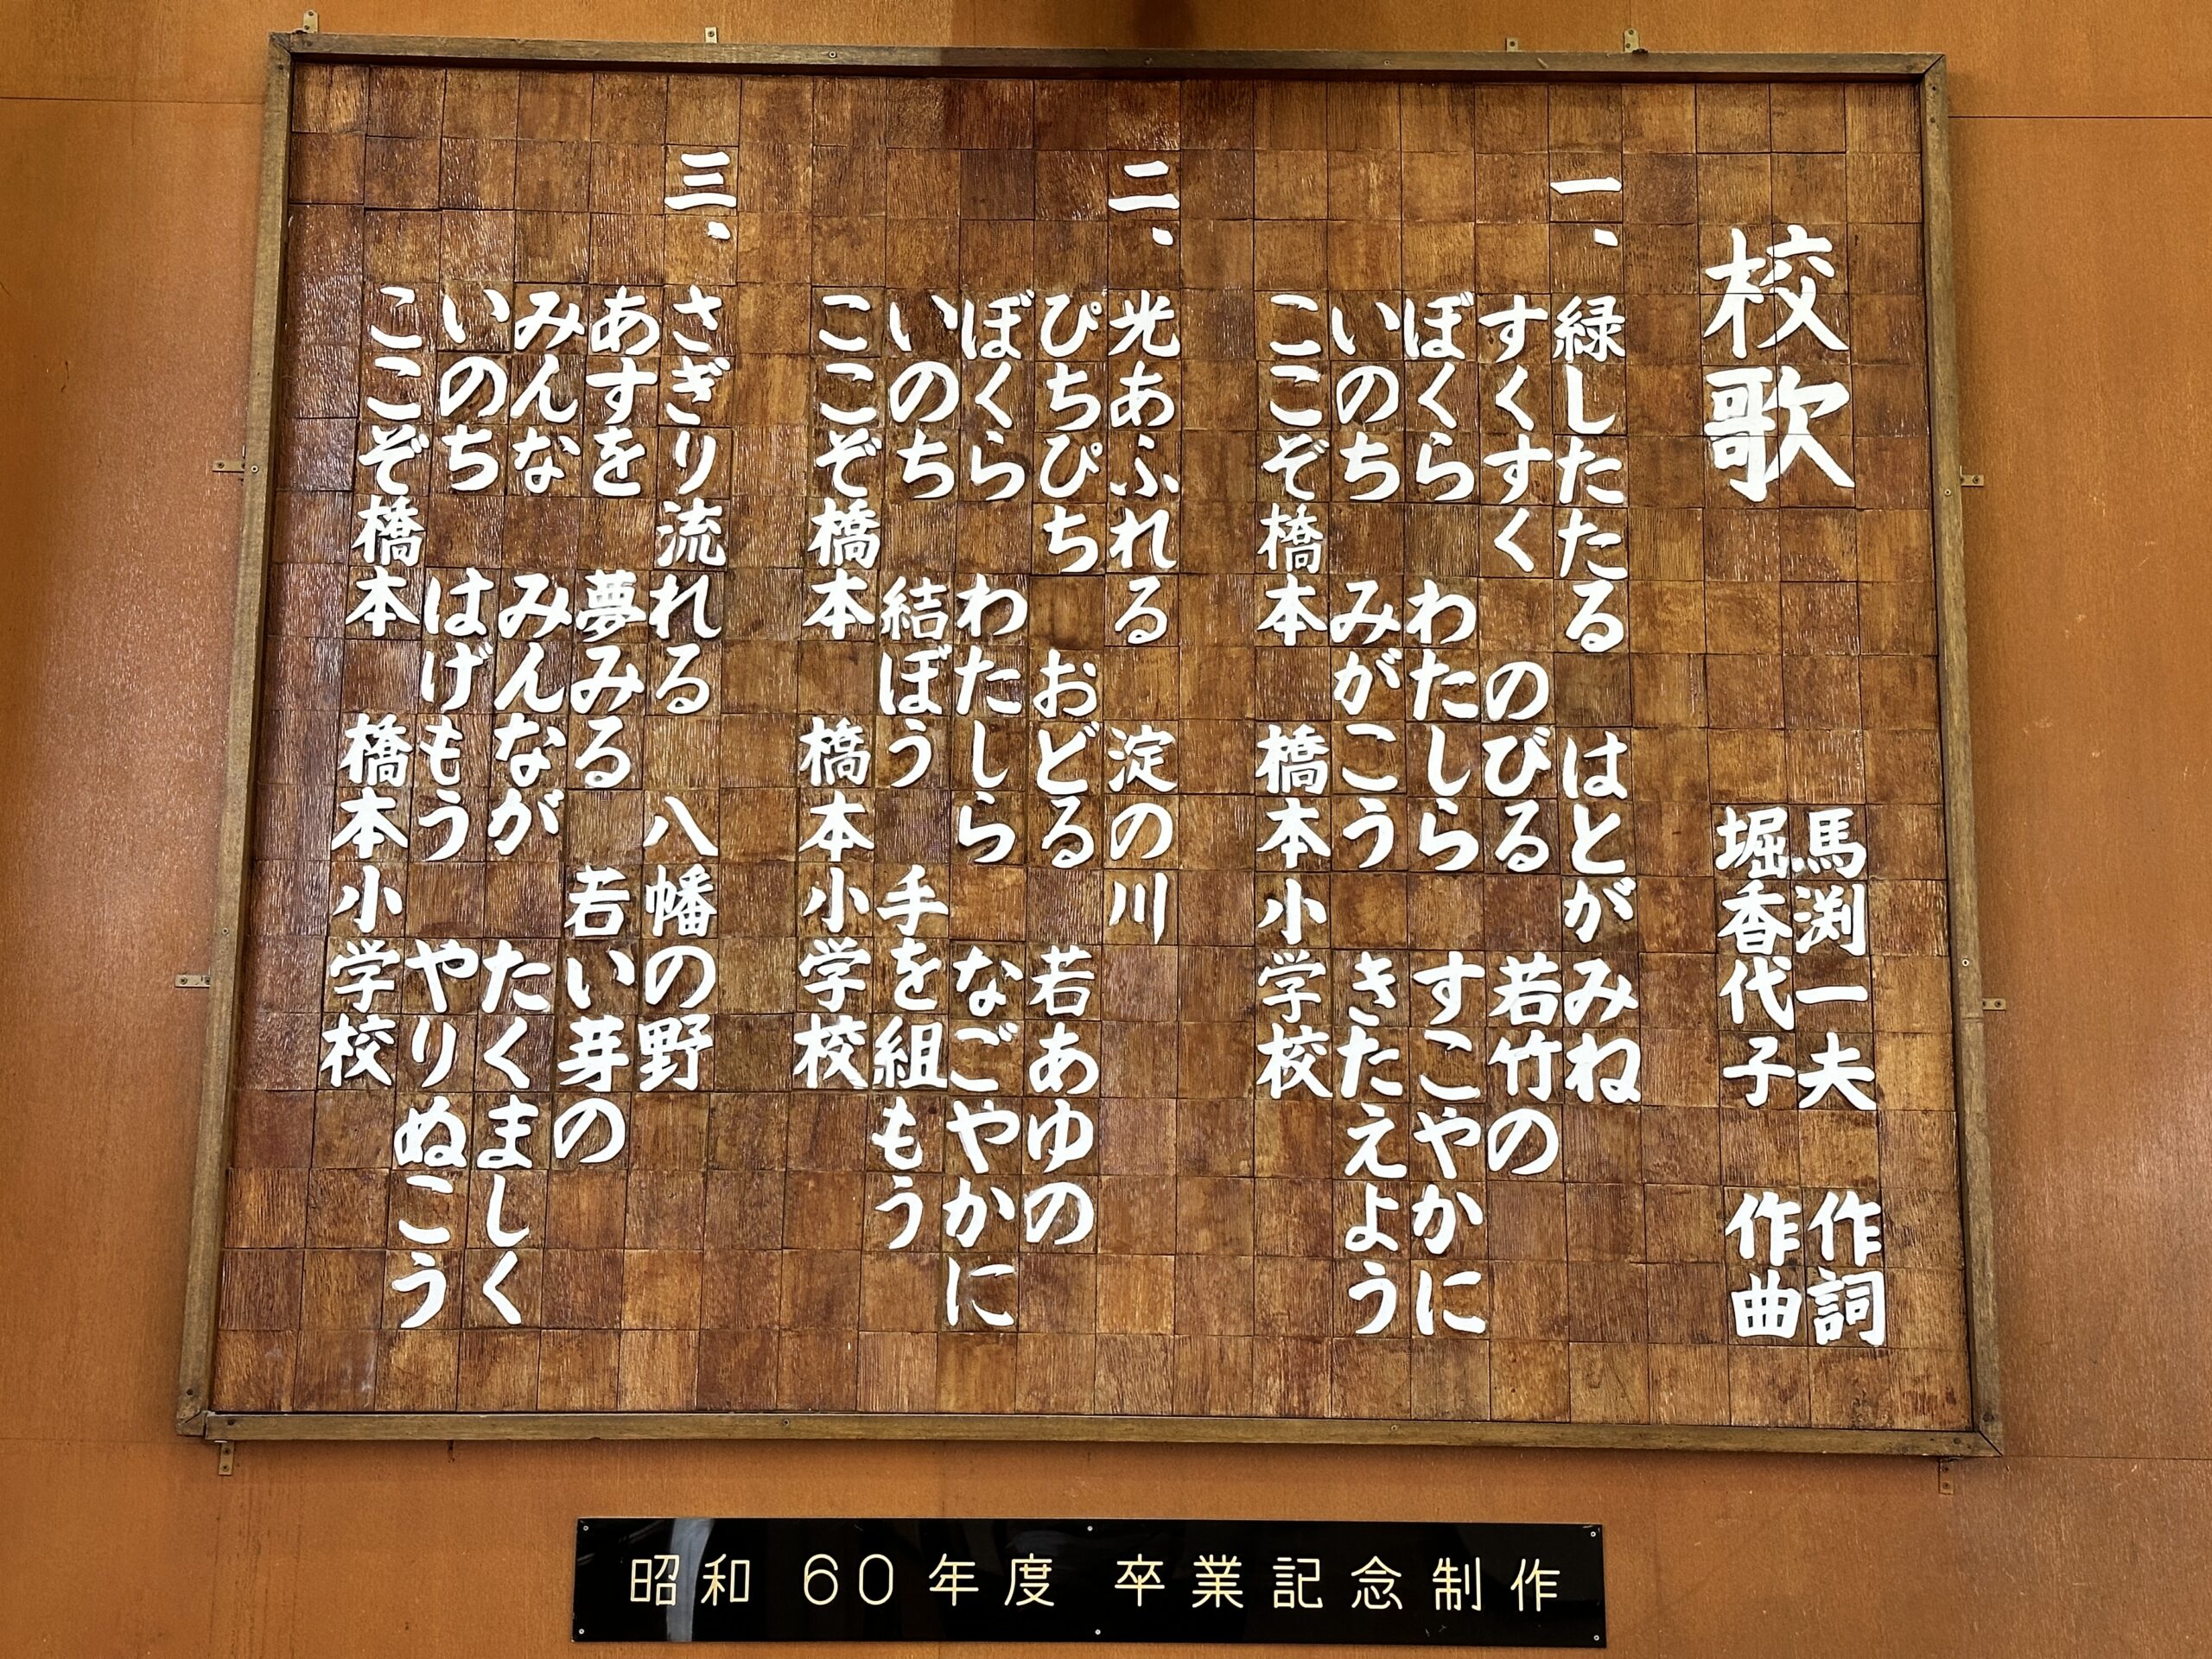 校歌
馬渕一夫 作詞
堀香代子 作曲
一、緑したたる はとがみね
すくすく のびる 若竹の
ぼくら わたしら すこやかに
いのち みがこう きたえよう
ここぞ橋本 橋本小学校
二、光あふれる 淀の川
ぴちぴち おどる 若あゆの
ぼくら わたしら なごやかに
いのち 結ぼう 手を組もう
ここぞ橋本 橋本小学校
三、さぎり流れる 八幡の野
あすを 夢みる 若い芽の
みんな みんなが たくましく
いのち はげもう やりぬこう
ここぞ橋本 橋本小学校
昭和60年度 卒業記念制作